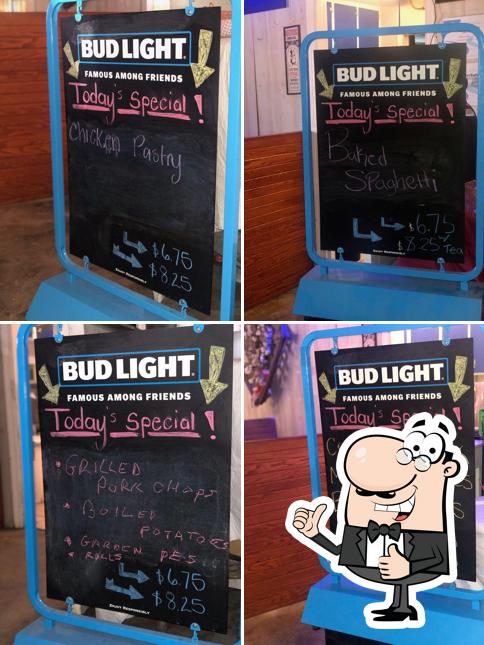 BUD LIGHT
FAMOUS AMONG FRIENDS
Today's Special!
Chicken Pastry
$6.75
$8.25
ENJOY RESPONSIBLY
BUD LIGHT
FAMOUS AMONG FRIENDS
Today's Special!
Baked
Spaghetti
$6.75
$8.25 Tea
ENJOY RESPONSIBLY
BUD LIGHT
FAMOUS AMONG FRIENDS
Today's Special!
GRILLED
PORK CHOPS
BOILED
POTATOES
GARDEN PES
ROLLS
$6.75
$8.25
ENJOY RESPONSIBLY
BUD LIGHT
FAMOUS AMONG FRIENDS
Today's Special!